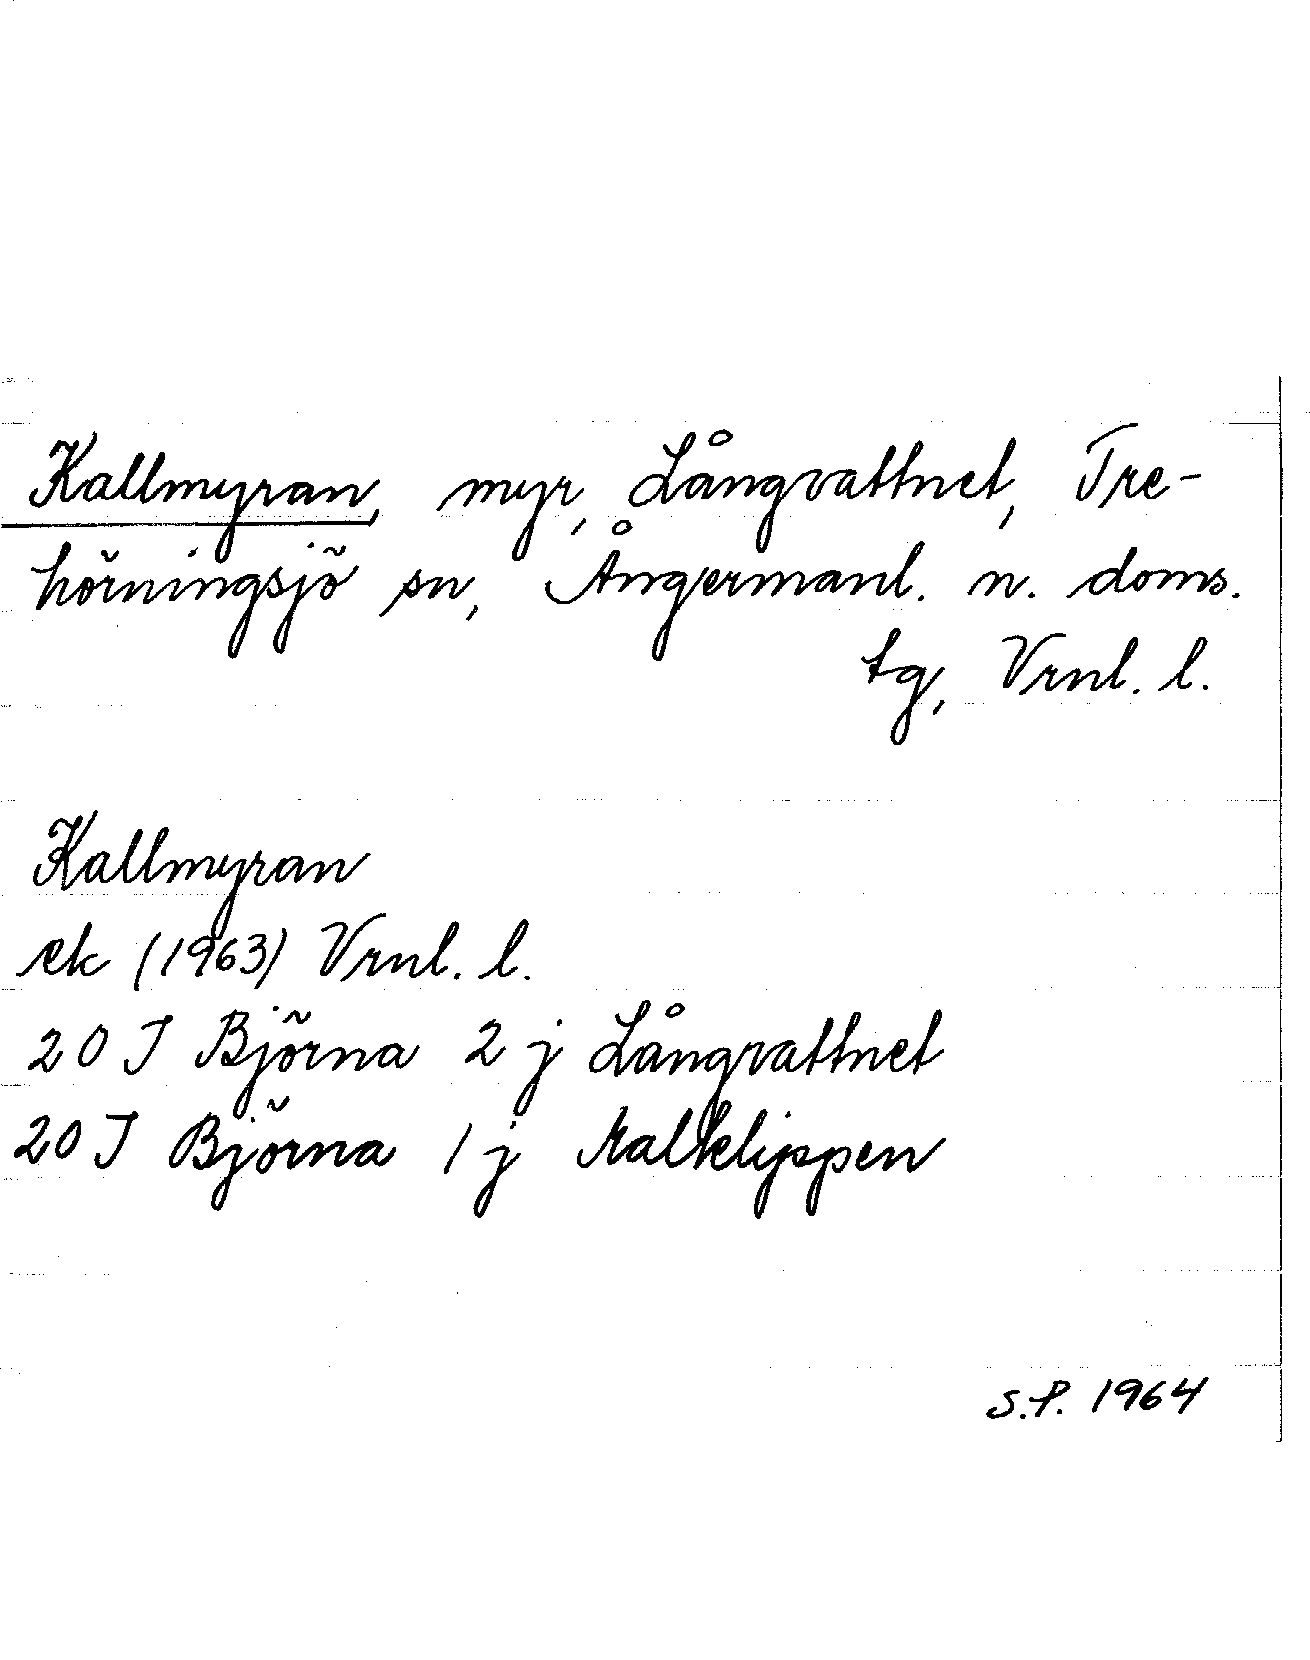 Kallmyran, myr, Långvattnet, Tre-
hörningsjö sn, Ångermanl. n. doms.
tg, Vrnl. l.
Kallmyran
ek (1963) Vrnl. l.
20 J Björna 2 j Långvattnet
20 J Björna 1 j Kalklippen
S.P. 1964